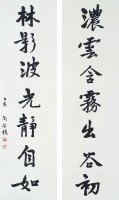 濃雲含霧出谷初
林影波光靜自如